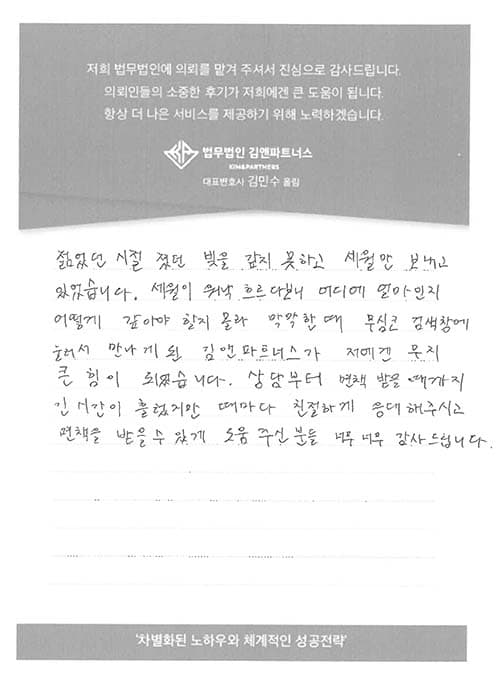 저희 법무법인에 의뢰를 맡겨 주셔서 진심으로 감사드립니다.
의뢰인들의 소중한 후기가 저희에겐 큰 도움이 됩니다.
항상 더 나은 서비스를 제공하기 위해 노력하겠습니다.
법무법인 김앤파트너스
KIM&PARTNERS
대표변호사 김민수 올림
젊었던 시절 졌던 빚을 갚지 못하고 세월만 보내고
있었습니다. 세월이 워낙 흐르다보니 어디에 얼마인지
어떻게 갚아야 할지 몰라 막막한 때 무심코 검색창에
눌러서 만나게 된 김앤파트너스가 저에겐 무지
큰 힘이 되었습니다. 상담부터 면책 받을 때까지
긴 시간이 흘렀지만 때마다 친절하게 응대해주시고
면책을 받을수 있게 도움 주신 분들 너무 너무 감사드립니다.
'차별화된 노하우와 체계적인 성공전략'